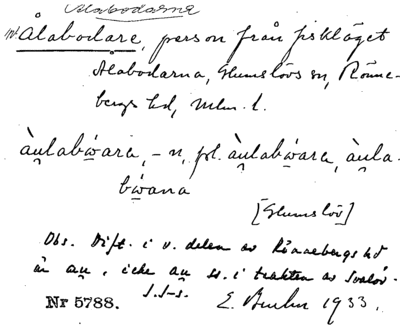 Ålabodarna
Ålabodare, person från fiskläget
Ålabodarna, Glumslövs sn, Rönne-
bergs hd, Mlm. l.
àu̯labẃara, – n, pl. àu̯labẃara, àu̯la-
bẃana
[Glumslöv]
Obs. Dift. i v. delen av Rönnebergs hd
är au̯, icke au̯ ss. i trakten av Svalöv.
Nr 5788. I.I-s. 1933.